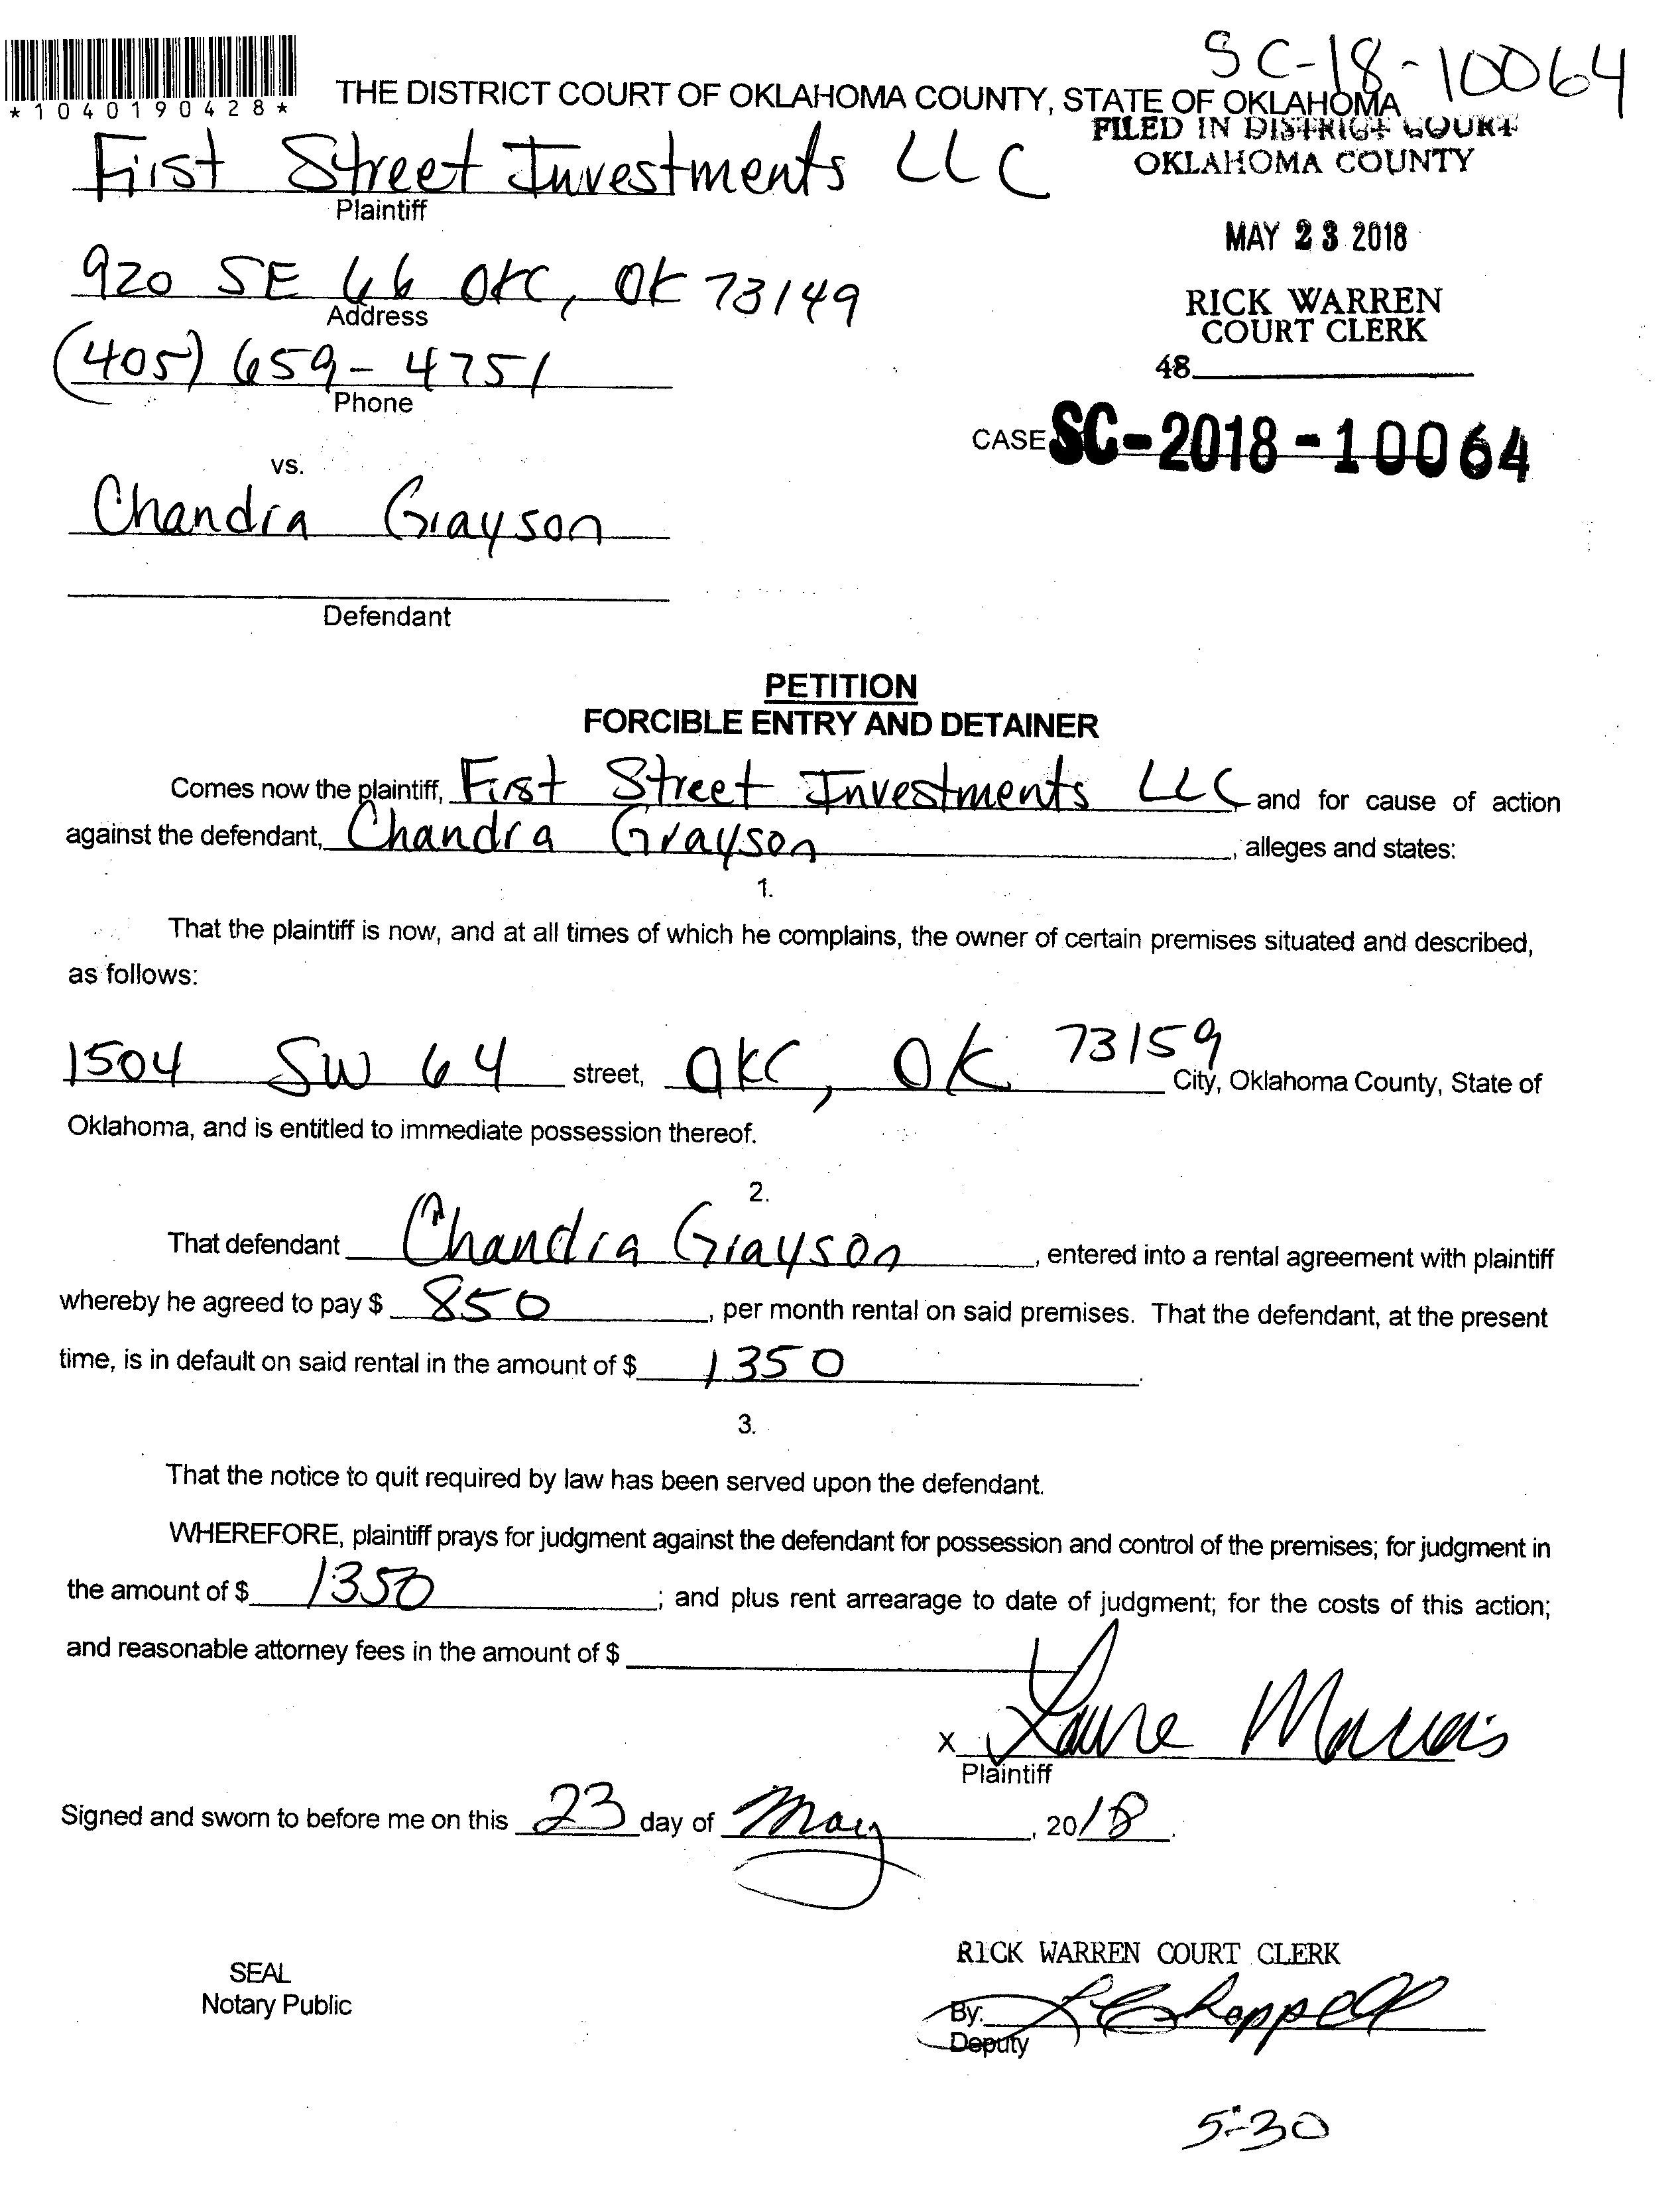 SC-18-10064
*1040190428*
THE DISTRICT COURT OF OKLAHOMA COUNTY, STATE OF OKLAHOMA
FILED IN DISTRICT COURT
OKLAHOMA COUNTY
First Street Investments LLC
Plaintiff
MAY 23 2018
920 SE 66 OKC, OK 73149
Address
RICK WARREN
COURT CLERK
(405) 659-4751
Phone
48
CASE SC-2018-10064
vs.
Chandra Grayson
Defendant
PETITION
FORCIBLE ENTRY AND DETAINER
Comes now the plaintiff, First Street Investments LLC and for cause of action
against the defendant, Chandra Grayson, alleges and states:
1.
That the plaintiff is now, and at all times of which he complains, the owner of certain premises situated and described,
as follows:
1504 SW 64 street, OKC, OK 73159 City, Oklahoma County, State of
Oklahoma, and is entitled to immediate possession thereof.
2.
That defendant Chandra Grayson, entered into a rental agreement with plaintiff
whereby he agreed to pay $ 850, per month rental on said premises. That the defendant, at the present
time, is in default on said rental in the amount of $ 1350.
3.
That the notice to quit required by law has been served upon the defendant.
WHEREFORE, plaintiff prays for judgment against the defendant for possession and control of the premises; for judgment in
the amount of $ 1350; and plus rent arrearage to date of judgment; for the costs of this action;
and reasonable attorney fees in the amount of $
x
Plaintiff
Signed and sworn to before me on this 23 day of May, 2018.
RICK WARREN COURT CLERK
SEAL
Notary Public
By: Chappell
Deputy
5-30